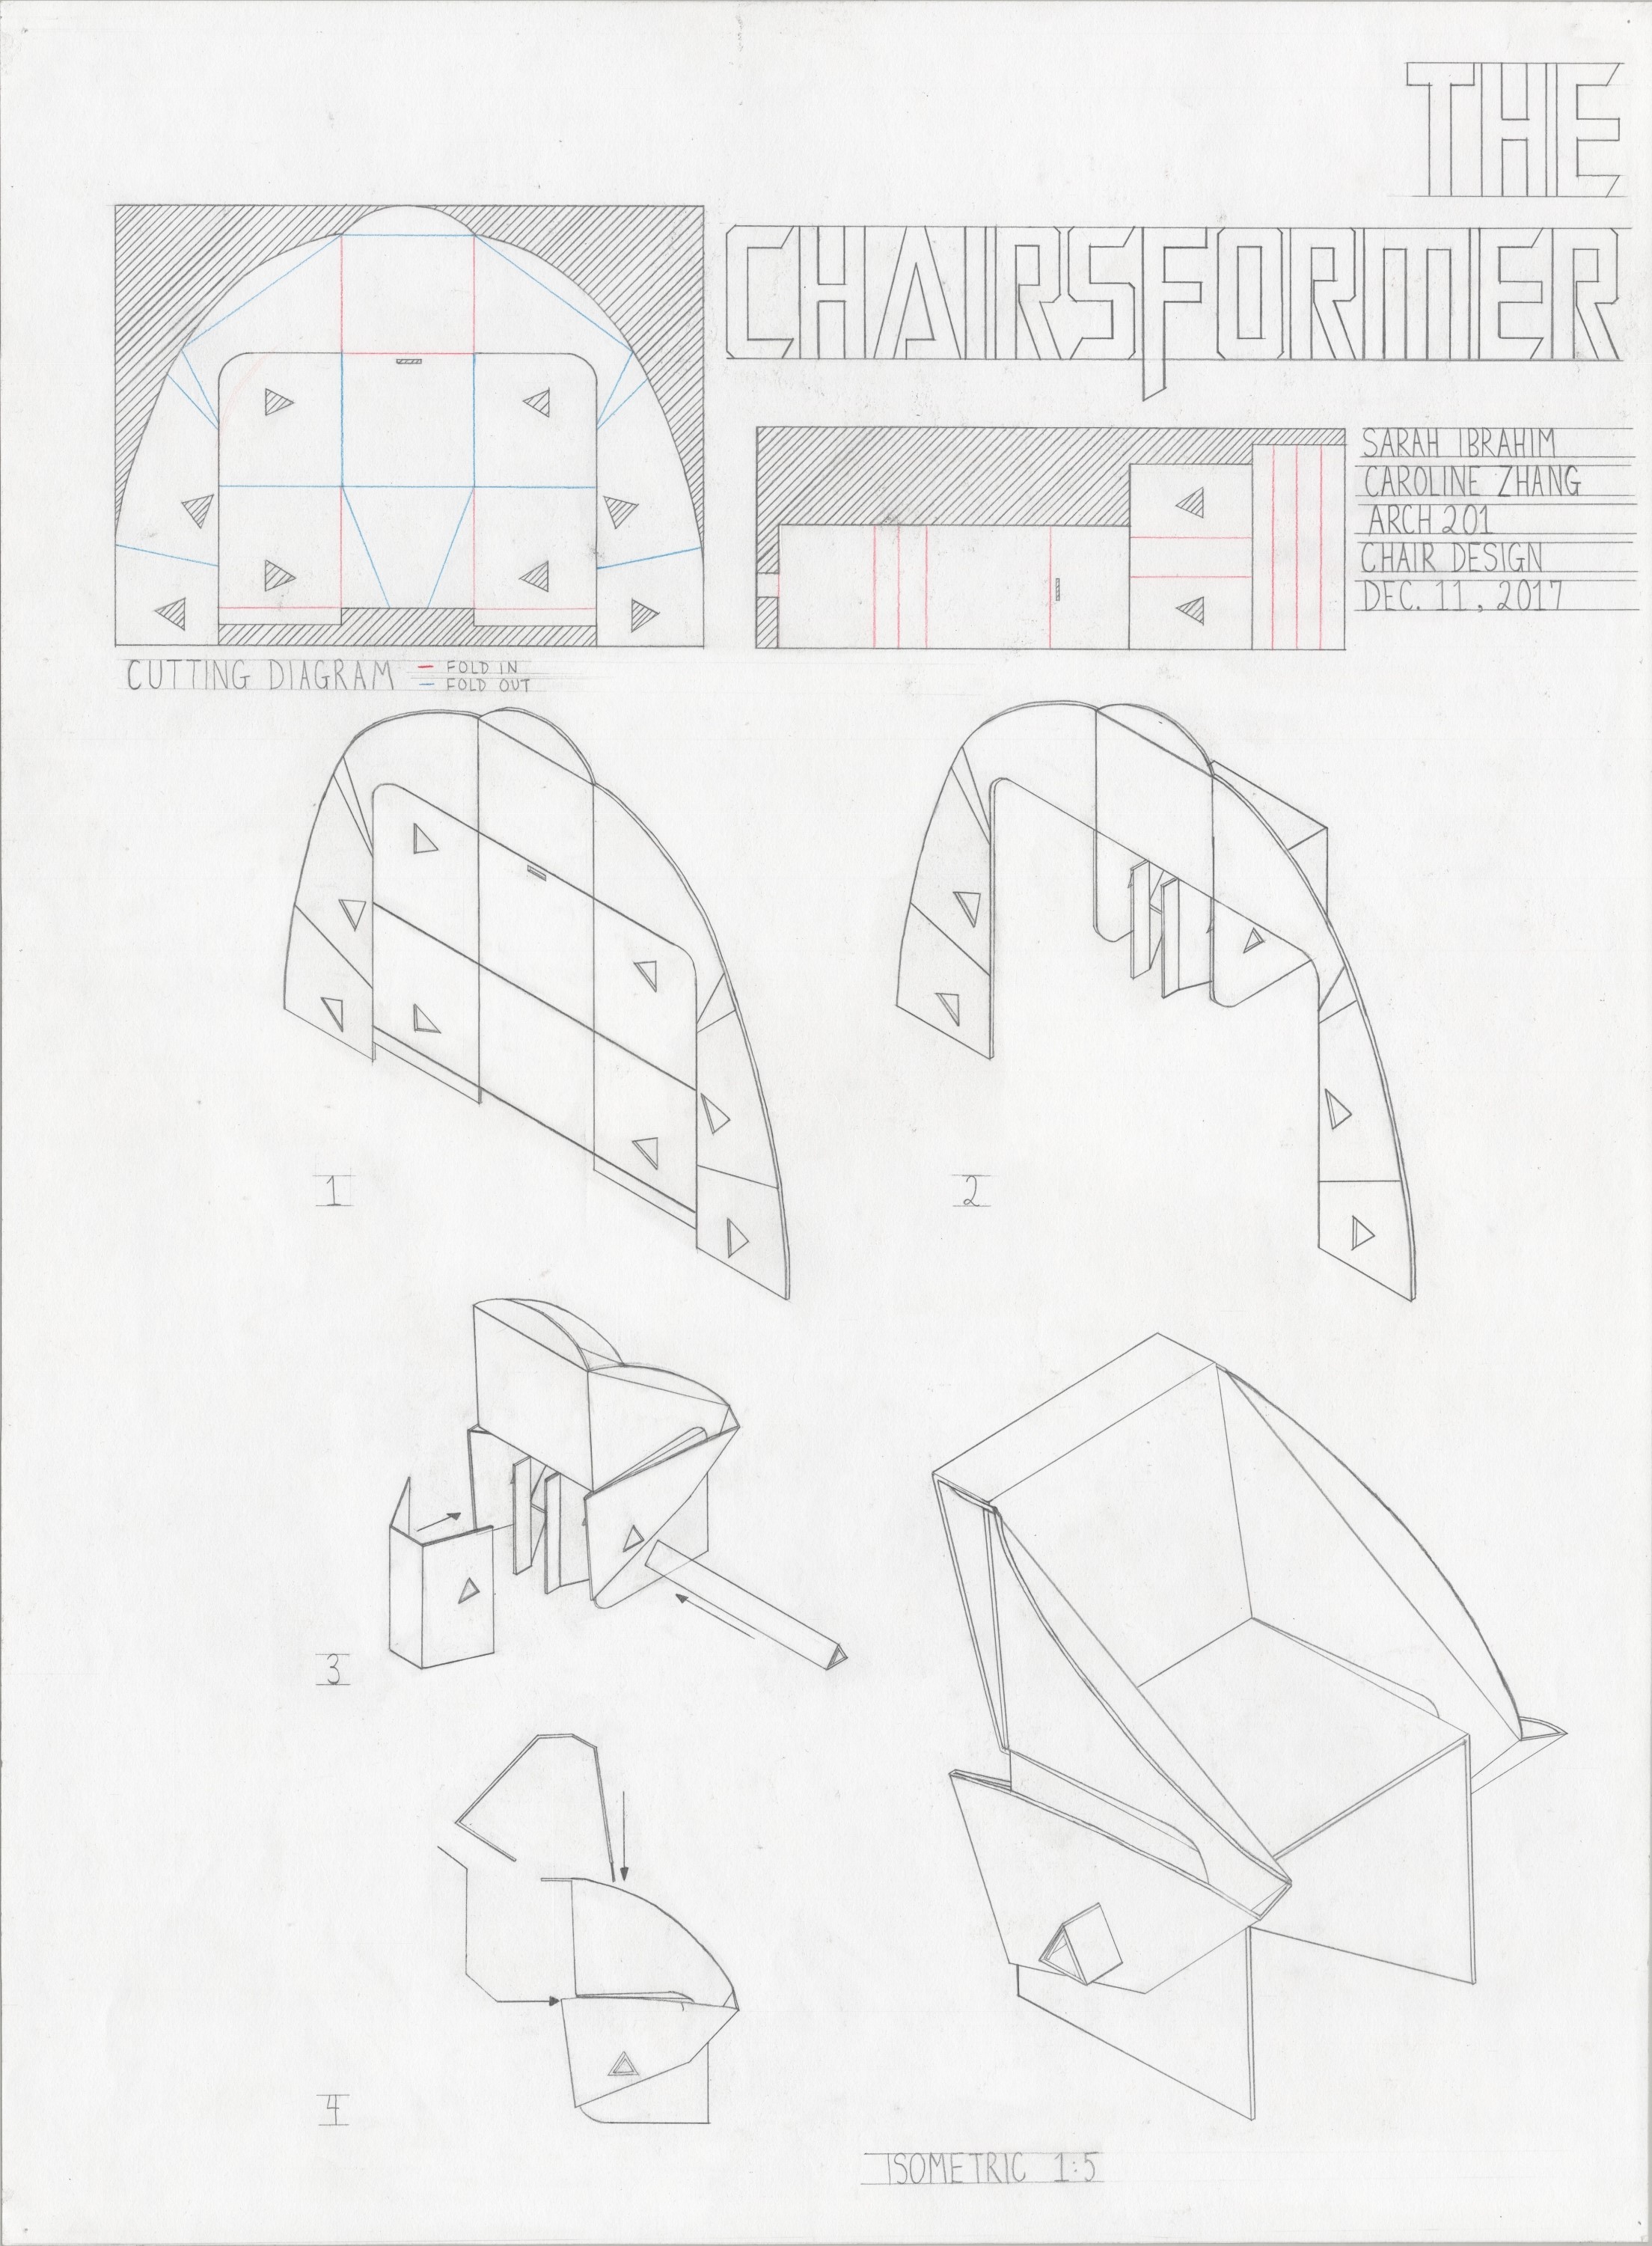 THE
CHAIRSFORMER
SARAH IBRAHIM
CAROLINE ZHANG
ARCH 201
CHAIR DESIGN
DEC. 11, 2017
CUTTING DIAGRAM
FOLD IN
FOLD OUT
1
2
3
4
ISOMETRIC 1:5